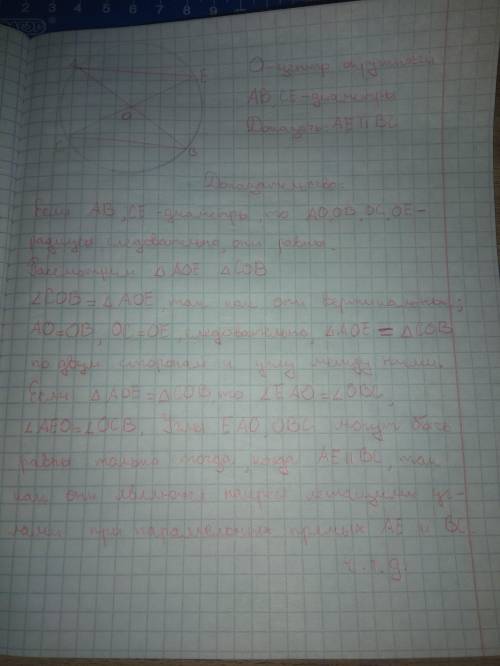 2 3 4 5 6 7 8 9
A
E
O
C
B
О-центр окружности
AB, CE-диаметры
Доказать: AE || BC
Доказательство:
Если AB, CE-диаметры, то AO, OB, OC, OE-
радиусы, следовательно, они равны.
Рассмотрим △ AOE △COB
∠COB = ∠AOE, так как они вертикальные;
AO=OB, OC=OE, следовательно, △AOE = △COB
по двум сторонам и углу между ними.
Если △AOE=△COB, то ∠EAO=∠OBC,
∠AEO=∠OCB. Углы EAO, OBC могут быть
равны только тогда, когда AE || BC, так
как они являются накрест лежащими уг-
лами при параллельных прямых AE и BC
ч.т.д.